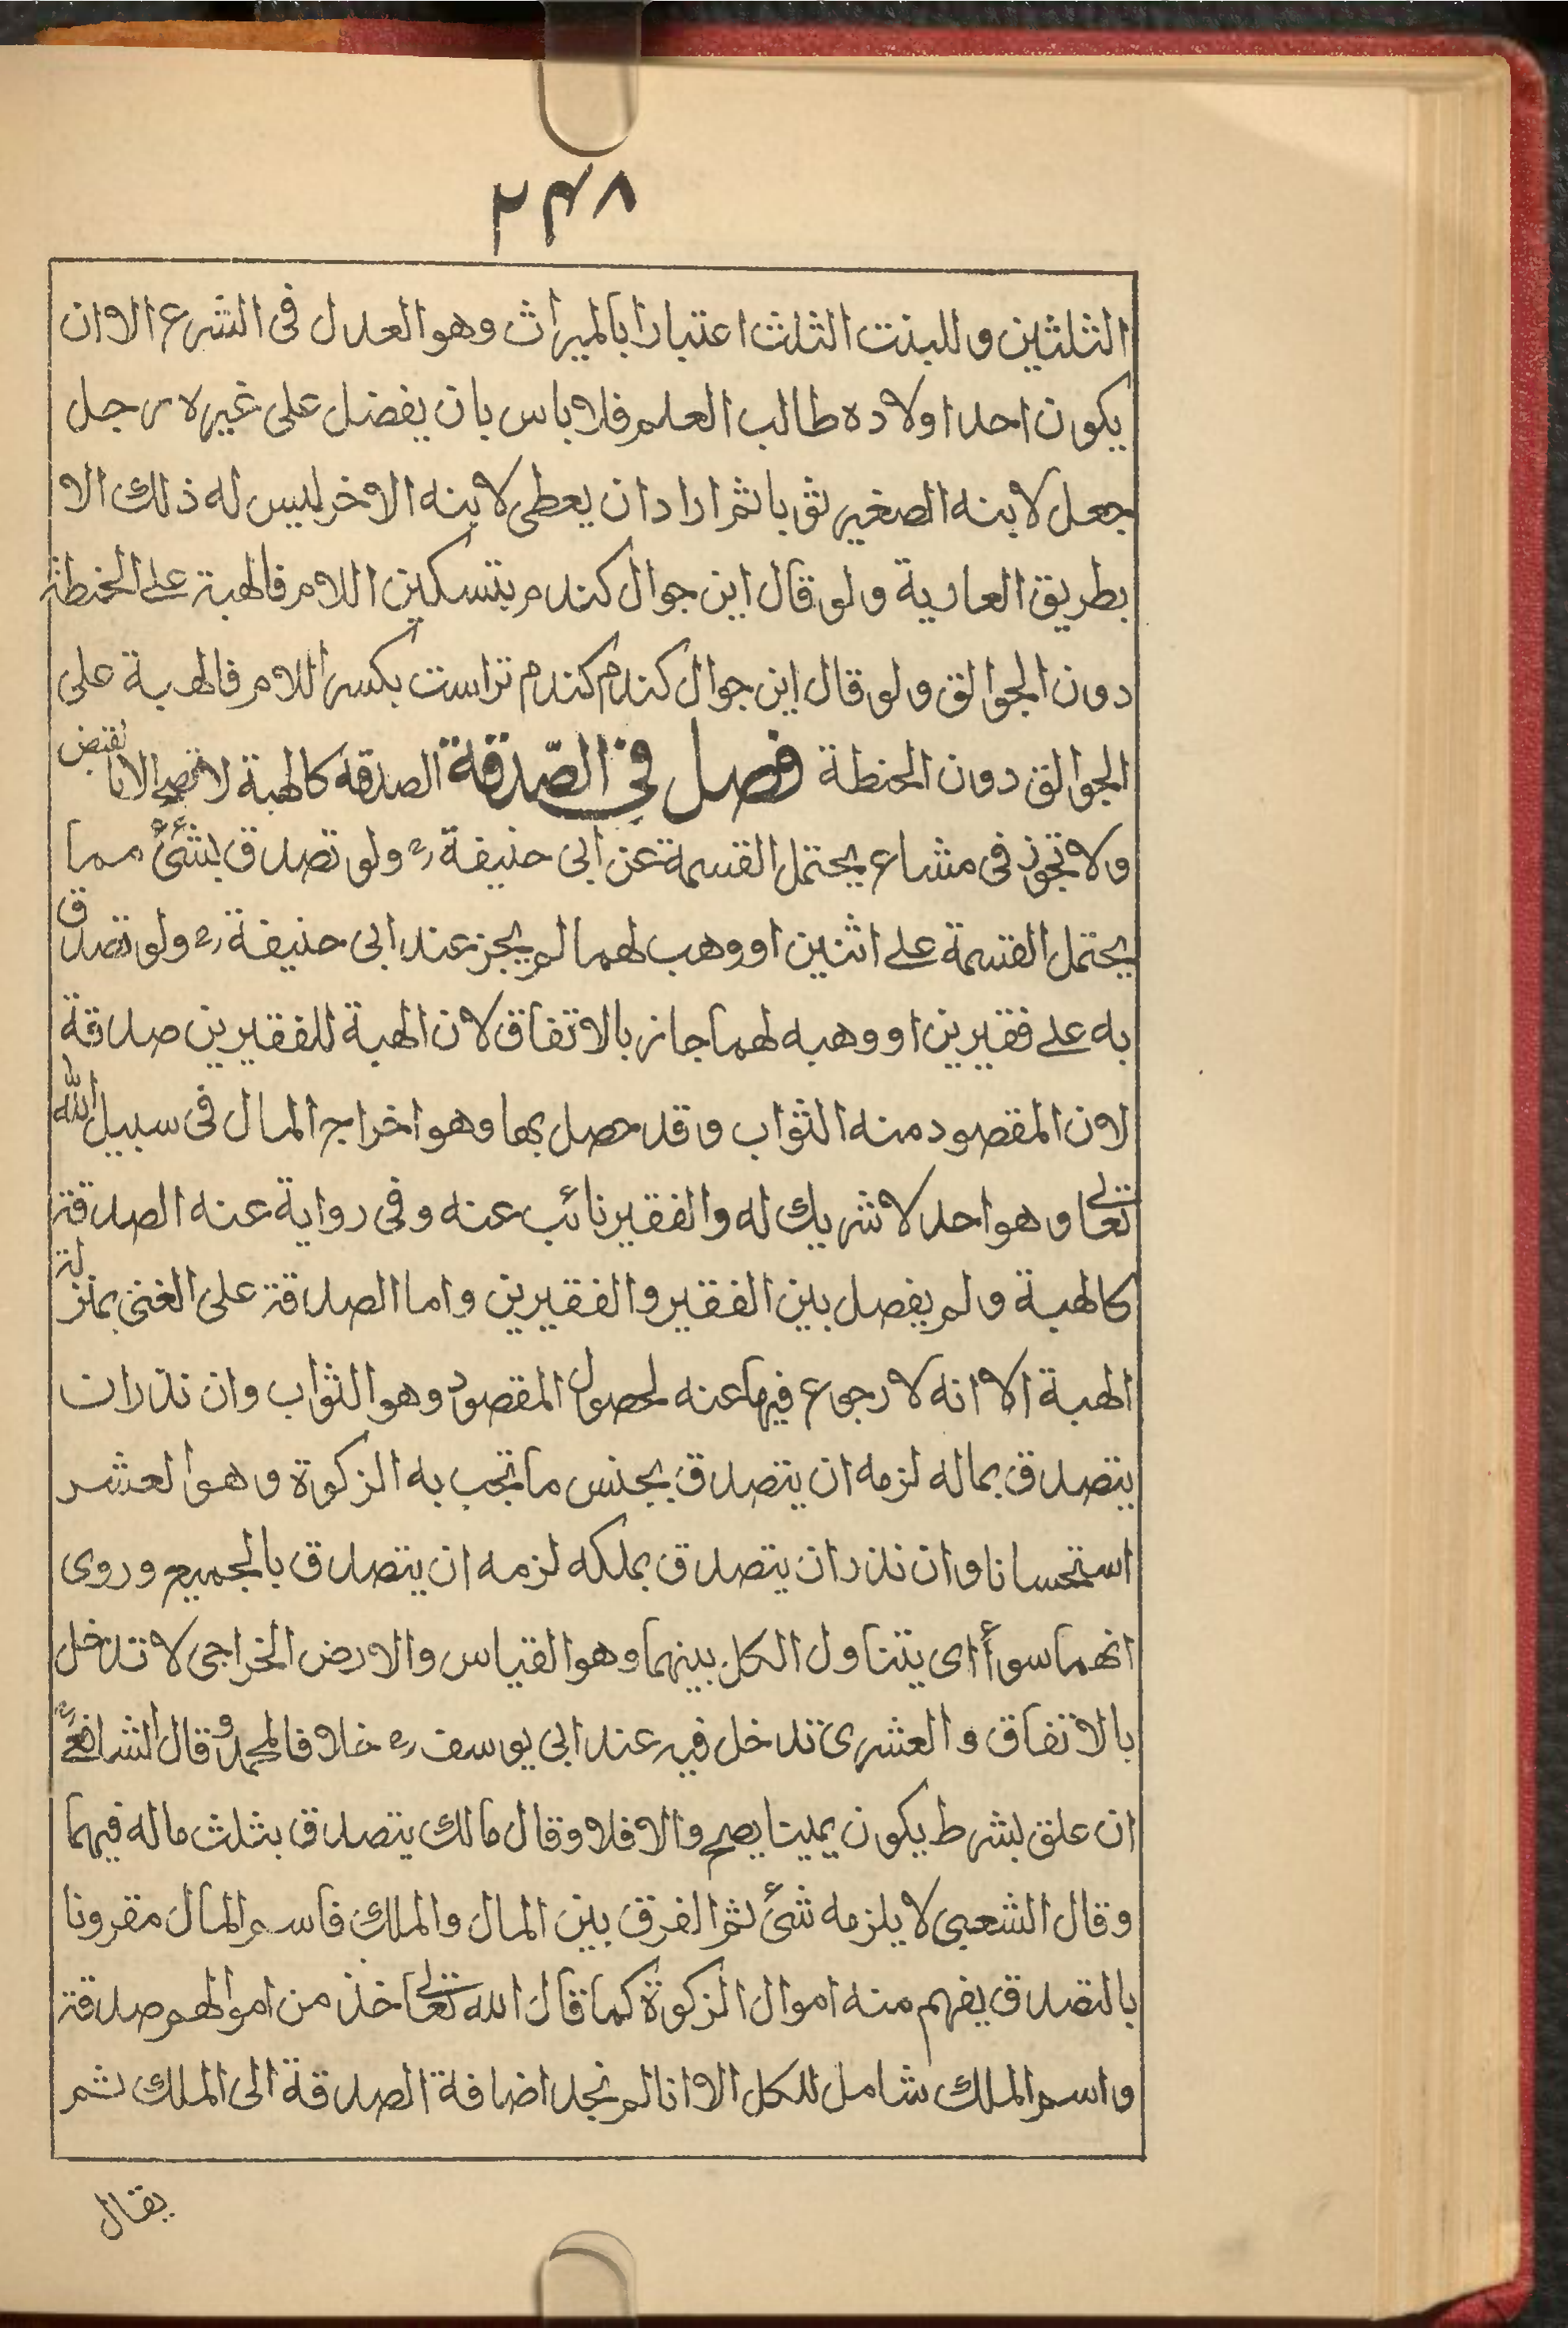 ٢٤٨
الثلثين وللبنت الثلث اعتبارا بالميراث وهو العدل فى الشرع الا ان
يكون احد اولاده طالب العلم فلا باس بان يفضل على غيره رجل
جعل لابنه الصغير ثوبا ثم اراد ان يعطى لابنه الاخر ليس له ذلك الا
بطريق العارية ولو قال اين جوال كندم بتسكين اللام فالهبة على الحنطة
دون الجوالق ولو قال اين جوال كندم كندم تراست بكسر اللام فالهبة على
الجوالق دون الحنطة فصل فى الصّدقة الصدقة كالهبة لا تصح الا بالقبض
ولا تجوز فى مشاع يحتمل القسمة عن ابى حنيفة رح ولو تصدق بشئ مما
يحتمل القسمة على اثنين او وهب لهما لم يجز عند ابى حنيفة رح ولو تصدق
به على فقيرين او وهبه لهما جاز بالاتفاق لان الهبة للفقيرين صدقة
لان المقصود منه الثواب وقد حصل بها وهو اخراج المال فى سبيل الله
تعالى وهو احد لا شريك له والفقير نائب عنه وفى رواية عنه الصدقة
كالهبة ولم يفصل بين الفقير والفقيرين واما الصدقة على الغنى بمنزلة
الهبة الا انه لا رجوع فيها عنه لحصول المقصود وهو الثواب وان نذر ان
يتصدق بماله لزمه ان يتصدق بجنس ما تجب به الزكوة وهو العشر
استحسانا وان نذر ان يتصدق بملكه لزمه ان يتصدق بالجميع وروى
انهما سوأ اى يتناول الكل بينهما وهو القياس والارض الخراجى لا تدخل
بالاتفاق والعشرى تدخل فيه عند ابى يوسف رح خلافا لمحمد وقال الشافعى رح
ان علق بشرط يكون يمينا يصح والا فلا وقال مالك يتصدق بثلث ماله فيهما
وقال الشعبى لا يلزمه شئ ثم الفرق بين المال والملك فاسم المال مقرونا
بالتصدق يفهم منه اموال الزكوة كما قال الله تعالى خذ من اموالهم صدقة
واسم الملك شامل للكل الا انا لم نجد اضافة الصدقة الى الملك ثم
يقال